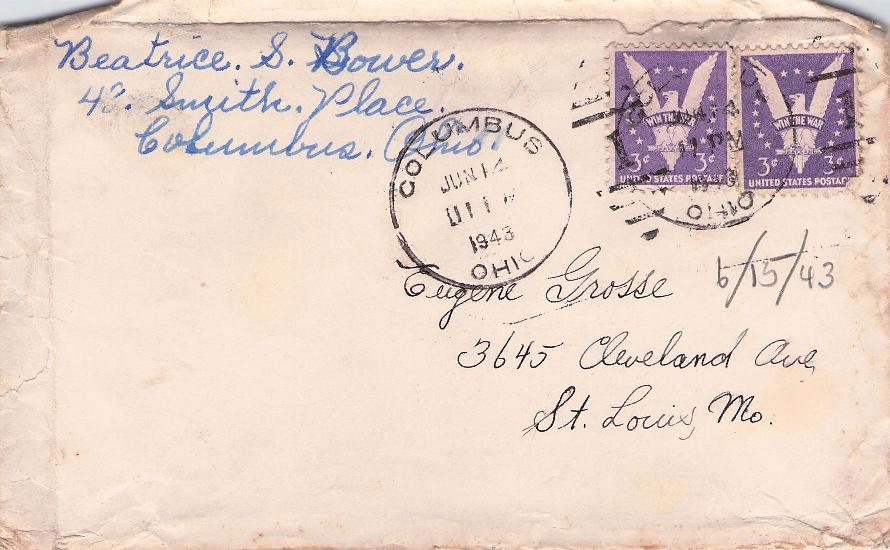 Beatrice. S. Bower.
42. Smith. Place.
Columbus. Ohio
COLUMBUS
JUN 14
11
1943
OHIO
WIN THE WAR
3¢ 3¢
UNITED STATES POSTAGE
WIN THE WAR
3¢ 3¢
UNITED STATES POSTAGE
14
11 PM
1943
OHIO
Eugene Grosse
6/15/43
3645 Cleveland Ave
St. Louis, Mo.